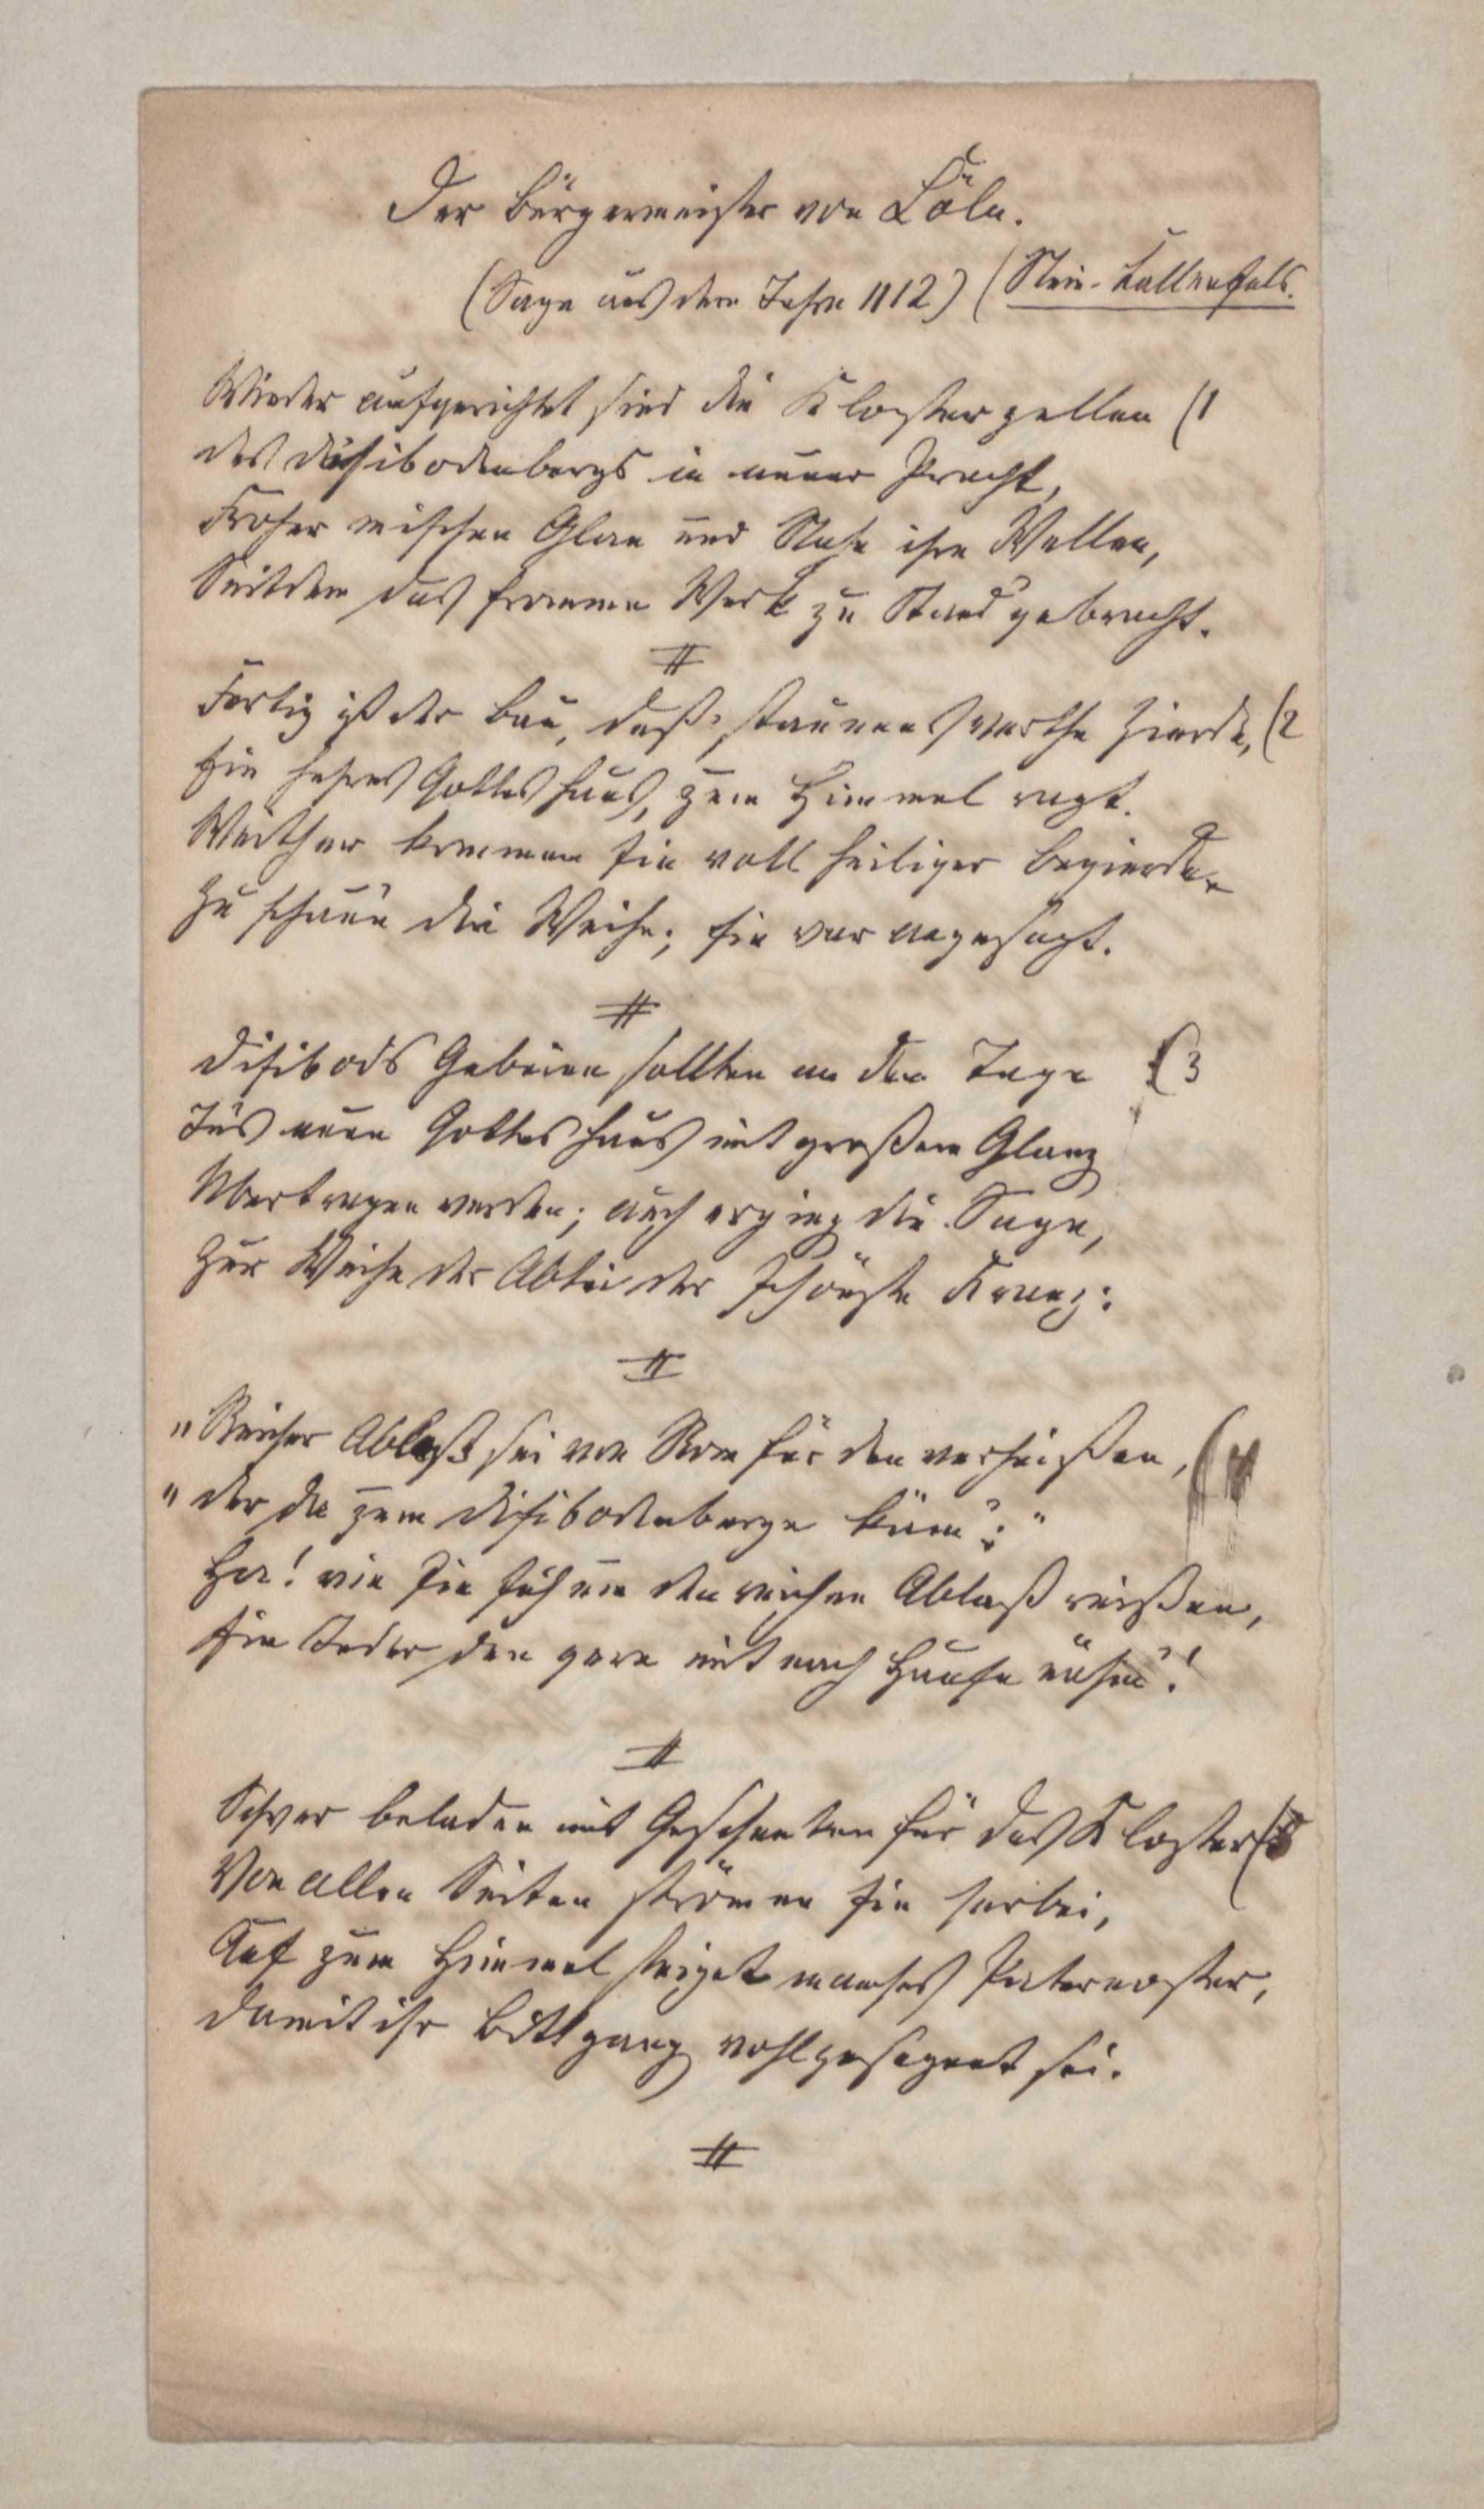 Der Bürgermeister von Cöln.
(Sage aus dem Jahre 1112) (Stein-Kallenfels.
Wieder aufgerichtet sind die Klosterzellen (1
des Disibodenbergs in neuer Pracht,
Froher mischen Glan und Nahe ihre Wellen,
Seitdem das fromme Werk zu Stand' gebracht.
Fertig ist der Bau, deß' staunenswerthe Zierde, (2
Ein hehres Gotteshaus, zum Himmel ragt.
Weither kommen sie voll heiliger Begierde
Zu schau'n die Weihe; sie war angesagt.
Disibods Gebeine sollten an dem Tage (3
In's neue Gotteshaus mit großem Glanz
Übertragen werden; auch erging die Sage,
Zur Weihe der Abtei der schönste Kranz:
"Reicher Ablaß sei von Rom für den verheißen, (4
"der da zum Disibodenberge käm';"
Ha! wie sie sich um den reichen Ablaß reißen,
Ein Jeder den gern mit nach Hause nähm'!
Schwer beladen mit Geschenken für das Kloster (5
Von allen Seiten strömen sie herbei,
Auf zum Himmel steiget manches Paternoster,
Damit ihr Bittgang wohlgesegnet sei.